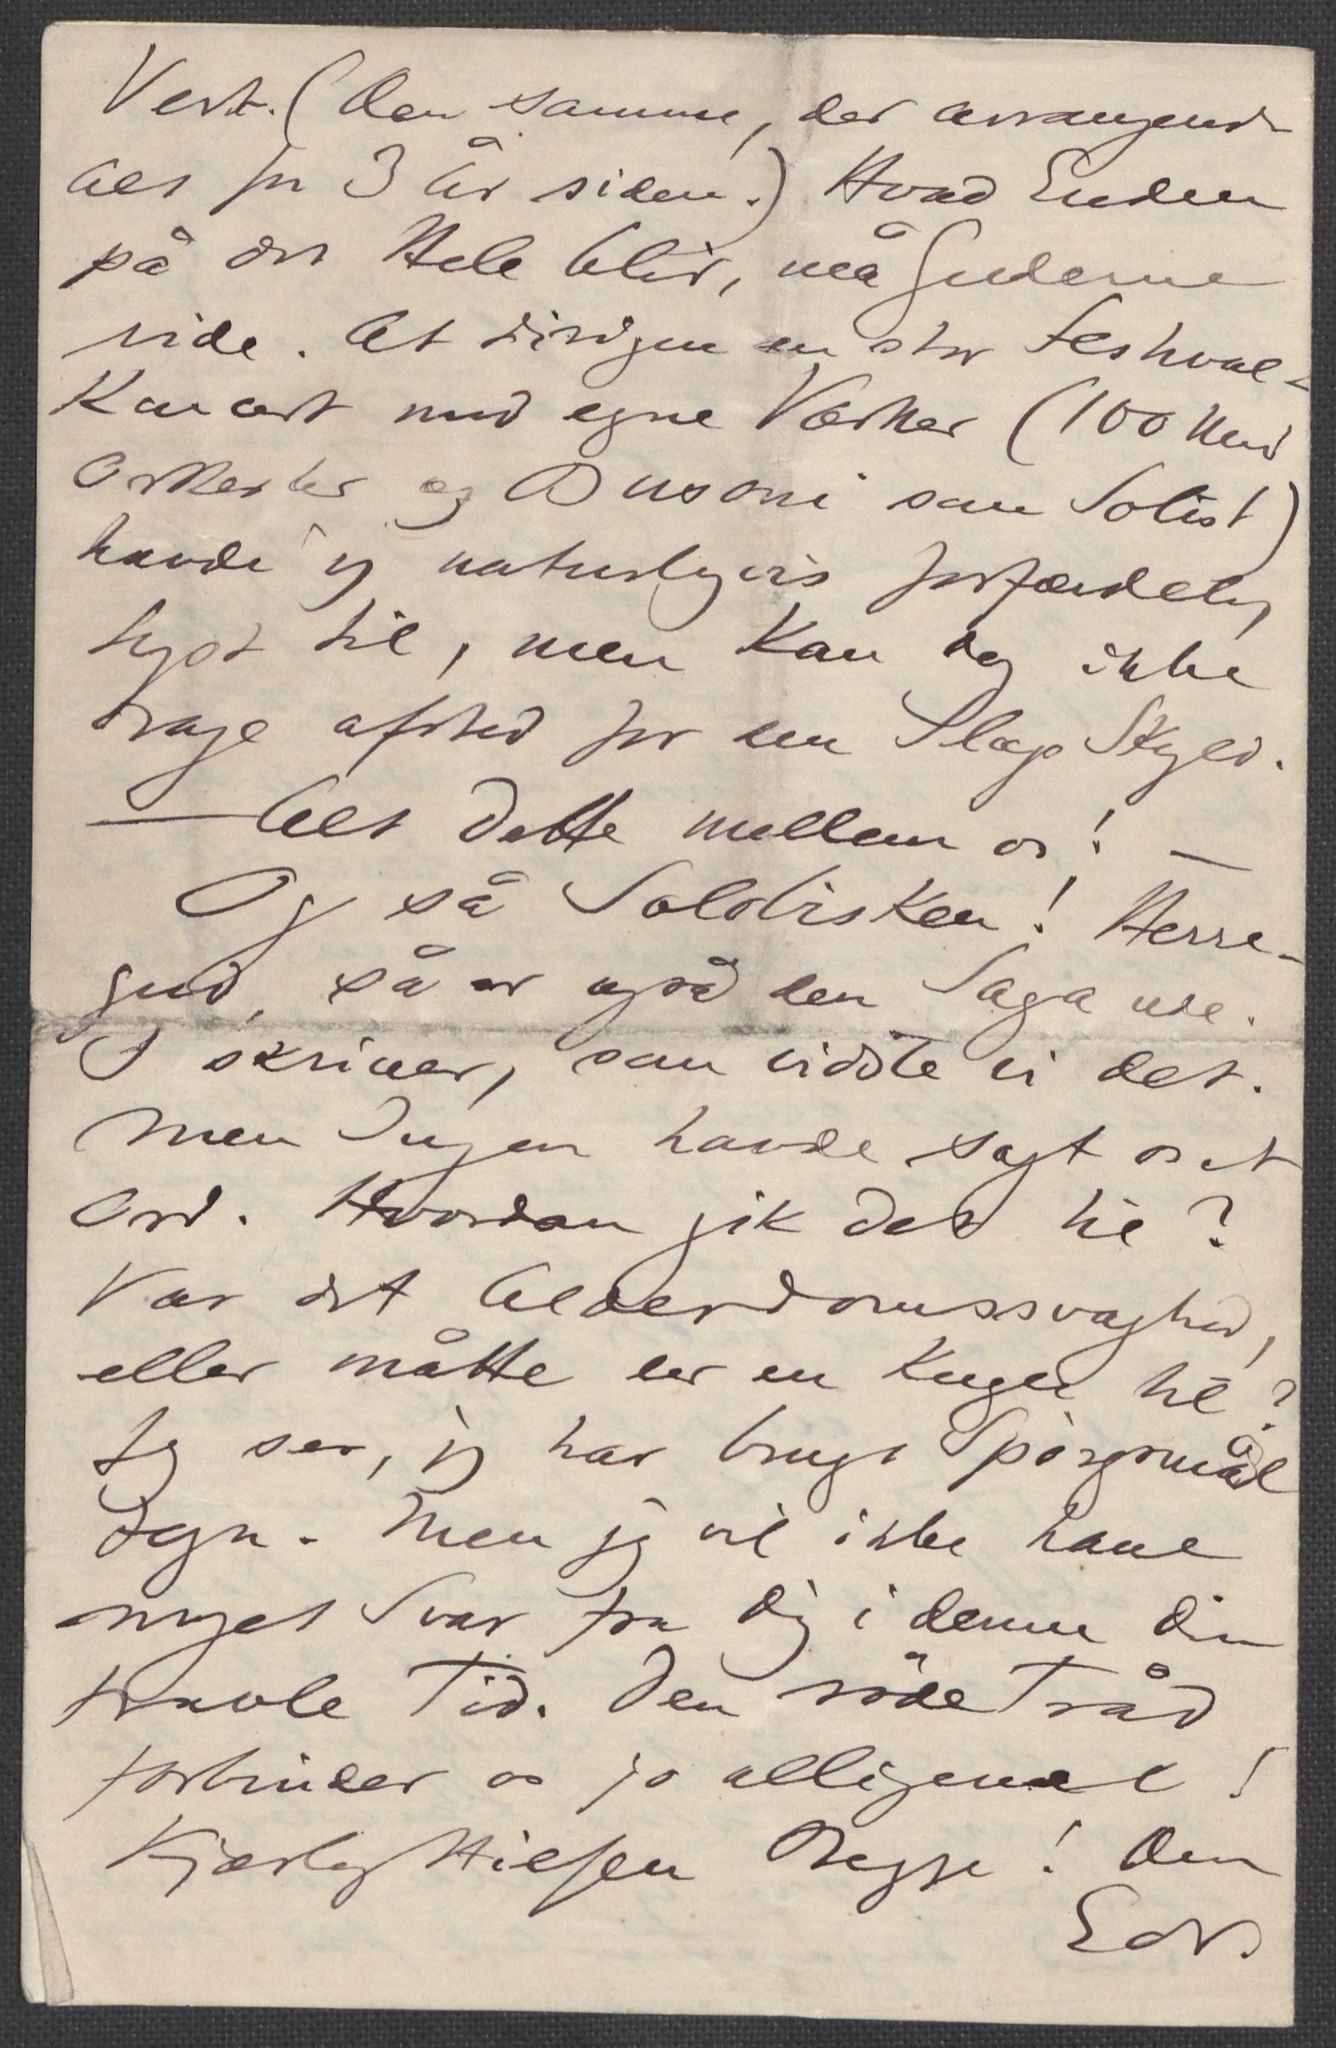 Vert. (den samme, der arrangerede
Alt for 3 år siden.) Hvad Enden
på det Hele blir, må Guderne
vide. At dirigere en stor Festival-
Koncert med egne Værker (100 Mand
Orkester og Busoni som Solist)
havde jeg naturligvis forfærdelig
Lyst til, men kan dog ikke
drage afsted for den Slags Skyld.
— Alt dette mellem os! —
Og så Solobisken! Herre-
gud, så er også den Saga ude.
I skriver, som vidste vi det.
Men Ingen havde sagt os et
Ord. Hvordan gik det til?
Var det Alderdomssvaghed,
eller måtte der en Kugle til?
Jeg ser, jeg har brugt Spörgsmål
tegn. Men jeg vil ikke have
noget Svar fra Dig i denne din
travle Tid. Den röde Tråd
forbinder os jo alligevel!
Kjærlig Hilsen Begge! Din
Edv.